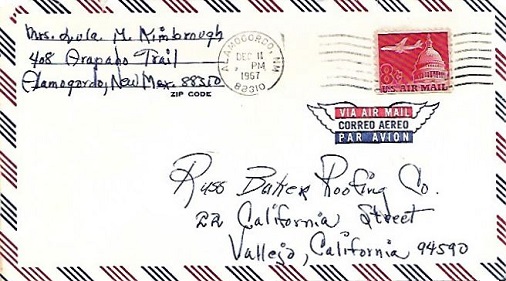 Mrs. Lula M. Kimbrough
408 Arapaho Trail
Alamogordo, New Mex. 88310
ZIP CODE
ALAMOGORDO, NM
DEC 11
PM
1967
88310
8¢
U.S. AIR MAIL
VIA AIR MAIL
CORREO AEREO
PAR AVION
Russ Baker Roofing Co.
22 California Street
Vallejo, California 94590